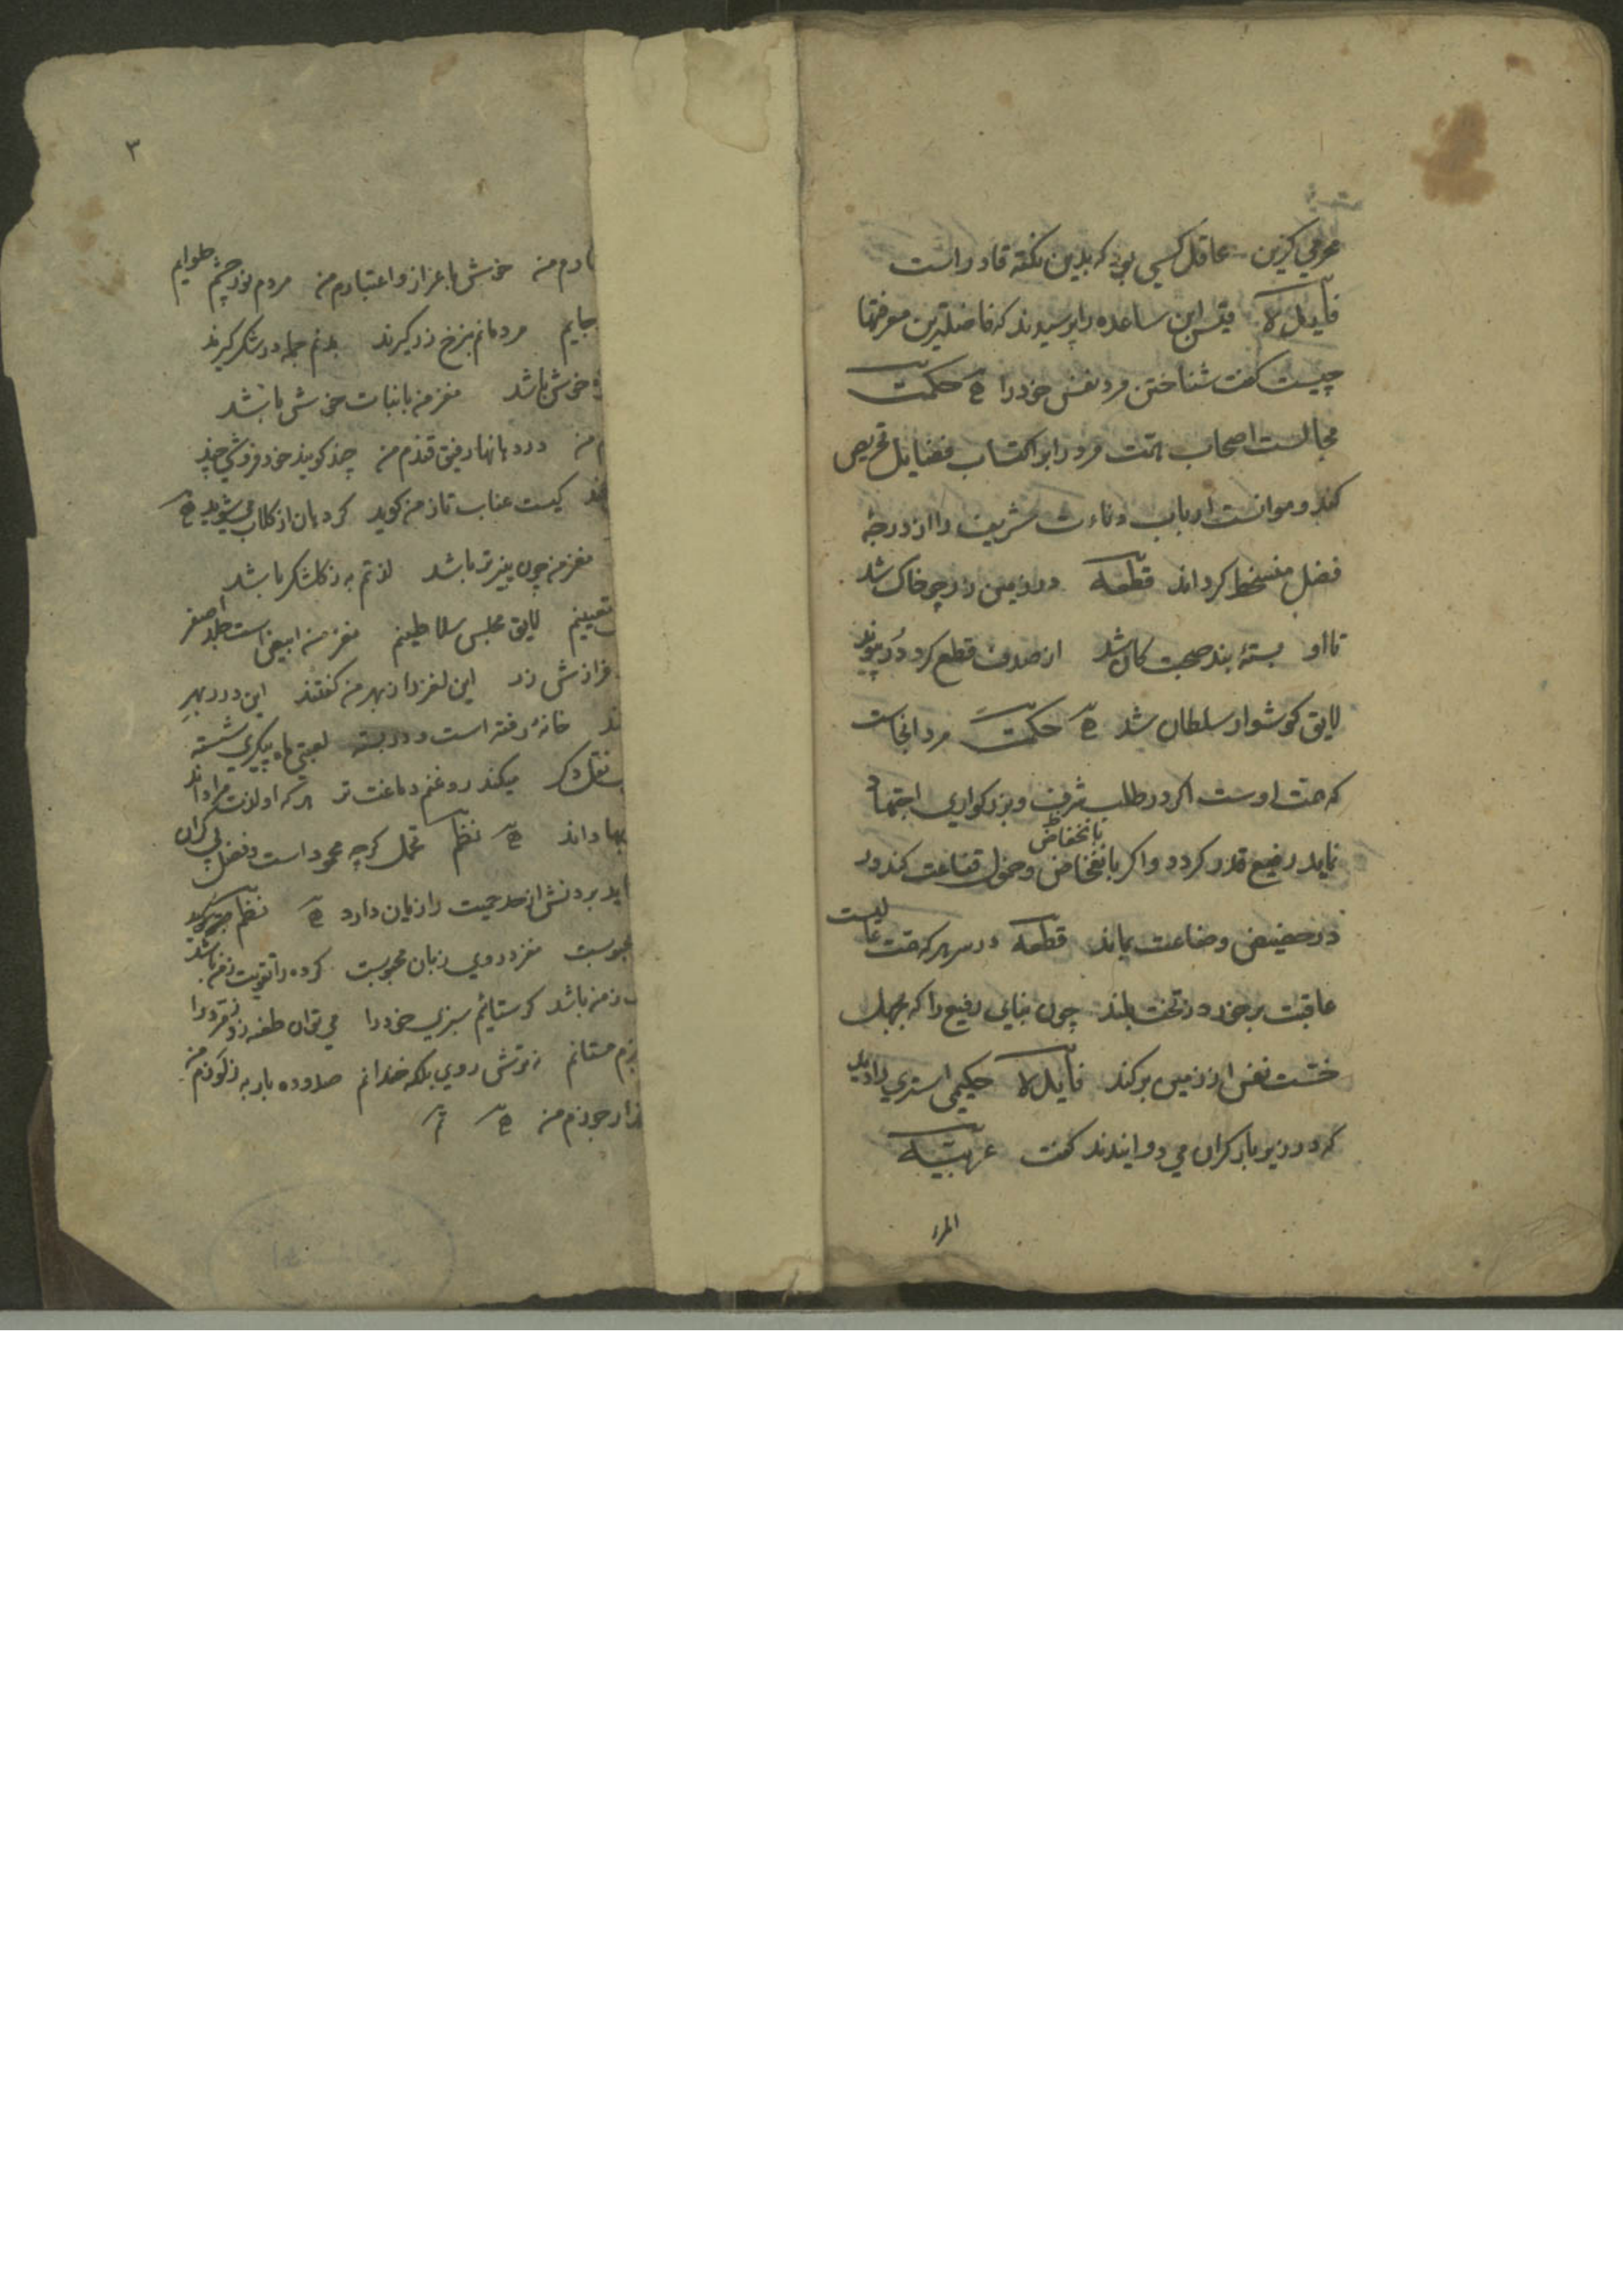 عرمی کزین عاقل کسی بود که بدین نکته قادر است
فایدة قیس ابن ساعده را پرسیدند که فاضلترین معرفتها
چیست کفت شناختن مرد نفس خود را حکمت
مجالست اصحاب همت مرد را بر اکتساب فضایل تحریص
کند و موانست ارباب دناءت شریف را از درجهٔ
فضل منسخط کرداند قطعه در زمین زر چو خاک شد
تا او بستهٔ بند صحبت کان شد از صدف قطع کرد در پیوند
لایق کوشوار سلطان شد حکمت مرد انجاست
که همت اوست اکر در طلب شرف و بزرکواری اجتهاد
نماید رفیع قدر کردد و اکر بانخفاض و خمول قناعت کند در
بانخفاض
در حضیض وضاعت بماند قطعه در سر هر که همت عالیست
عاقبت برخورد ز تخت بلند چون بنایی رفیع را که بجهل
خشت نفس از زمین برکند فایدة حکیمی استری را دید
که در زیر بار کران می دوانیدند کفت عربیة
المرء
۳
خوش باعزاز و اعتبارم من مردم نور چشم حلوایم
جایم مردمانم بنرخ زر کیرند بدنم جمله در شکر کیرند
خوش باشد مغز من با نبات خوش باشد
من در دهانها رفیق قندم من چند کویند خود فروشی چند
کیست عناب تا ز من کوید کر دهان از کلاب می شوید
مغز من چون پنیر تر باشد لذتم به ز کلشکر باشد
لایق مجلس سلاطینم مغز من ابیض است جلد اصفر
زر این لغز را ز بهر من کفتند این درر بهر
خانهٔ رفته است و در بسته لعبتی ماه پیکری شسته
نقل دکر میکند روغنم دماغت تر هر که او لذت مرا داند
بها داند نظم تحمل کرچه محمود است و فضل بی کران
بردنش از حد حمیت را زیان دارد نظم
مغز در روی زبان محبوبست کرده را تقویت ز من باشد
ز من باشد کر ستایم سبزی خود را می توان طعنه زد زمرد را
مستانم نه ترش روی بلکه خندانم صد و ده بار به ز کوزم من
جوزم من